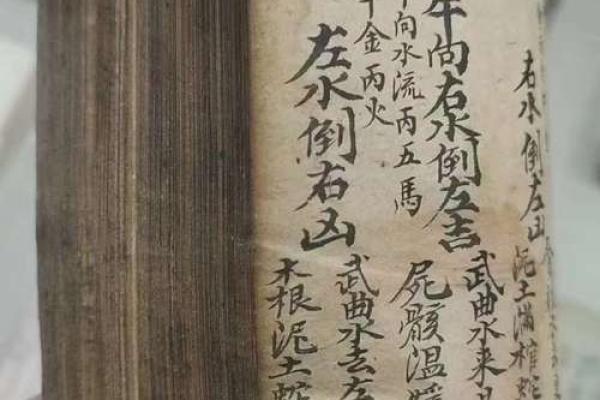 右水倒左凶
泥土滿棺
午向右水倒左吉
向水流丙五馬
金丙火
武曲水来
屍骸温
左水倒右凶
武曲水去左
木根泥土蛇